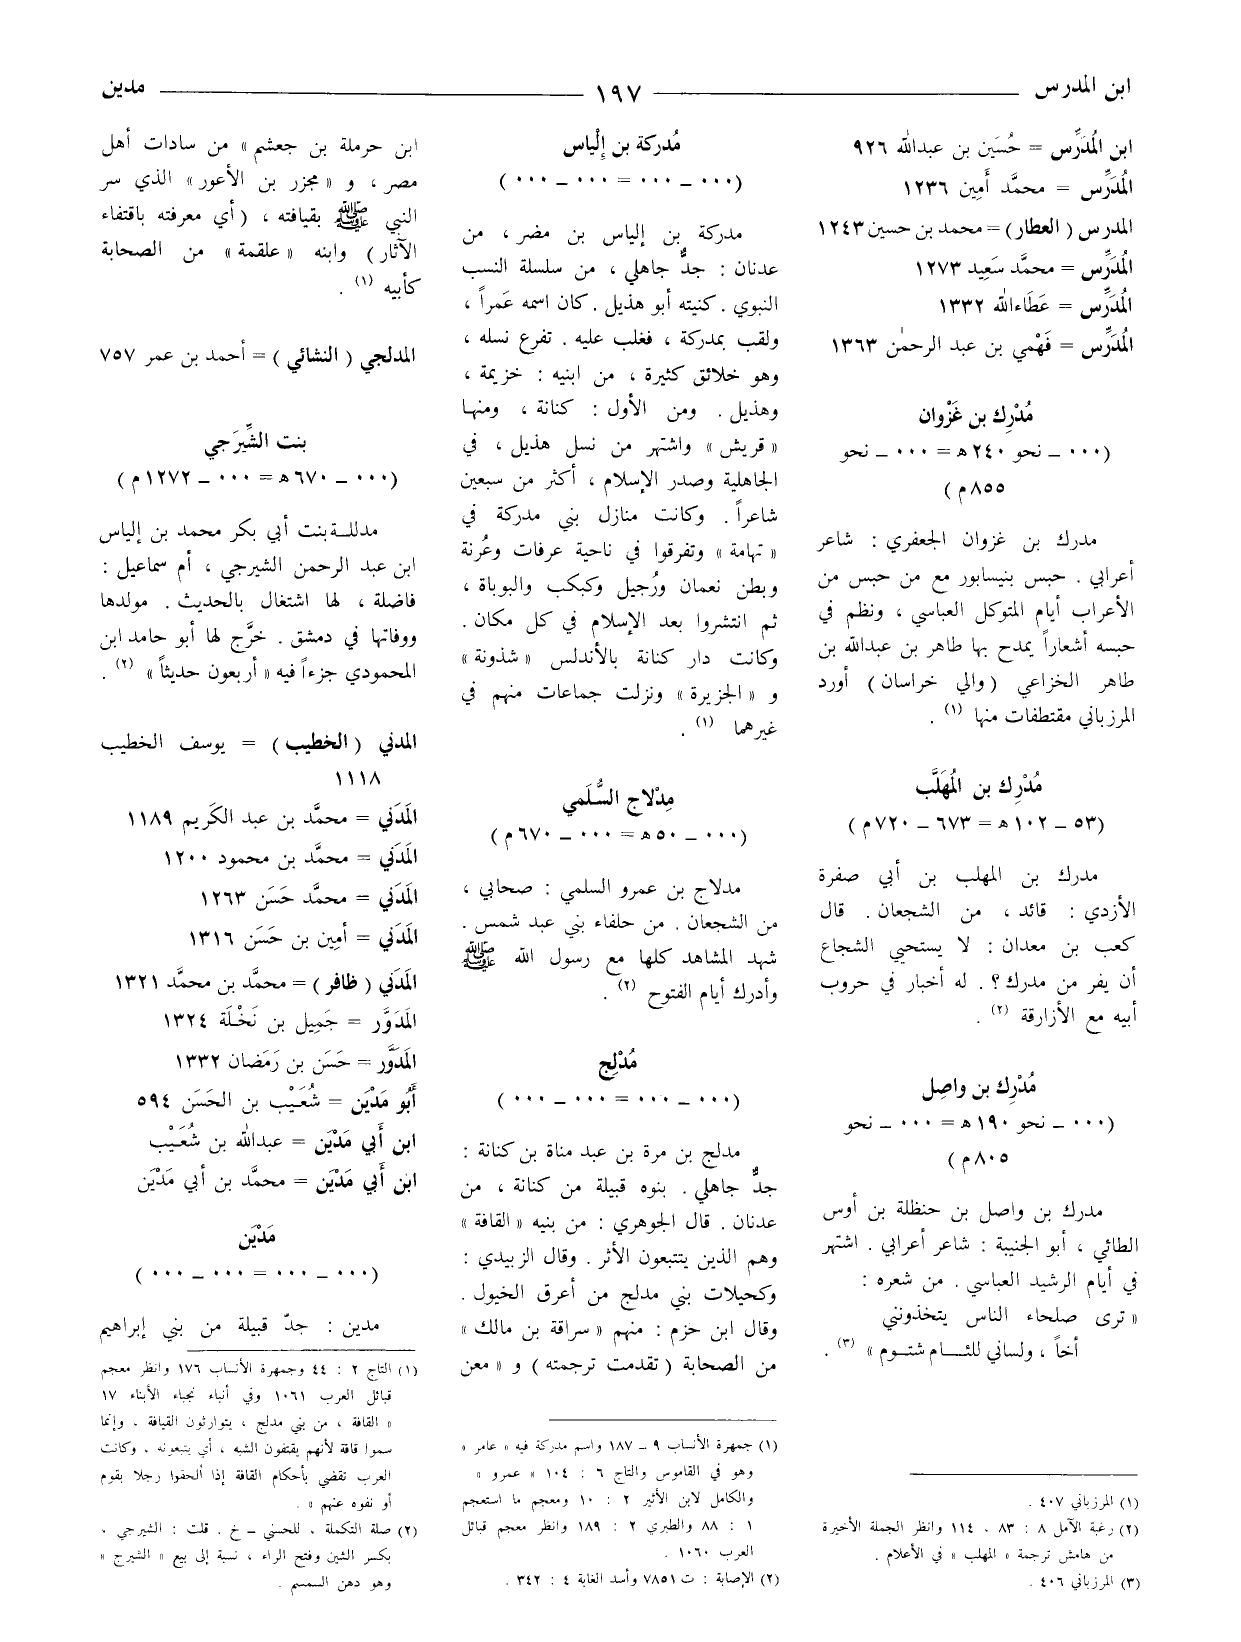 ابن المدرس
١٩٧
مدين
ابن المُدَرِّس = حُسَين بن عبدالله ٩٢٦
المُدَرِّس = محمَّد أَمِين ١٢٣٦
المدرس (العطار) = محمد بن حسين ١٢٤٣
المُدَرِّس = محمَّد سَعِيد ١٢٧٣
المُدَرِّس = عَطَاءالله ١٣٣٢
المُدَرِّس = فَهْمي بن عبد الرحمٰن ١٣٦٣
مُدْرِك بن غَزْوان
(٠٠٠ ــ نحو ٢٤٠ ه = ٠٠٠ ــ نحو
٨٥٥ م)
مدرك بن غزوان الجعفري : شاعر
أعرابي . حبس بنيسابور مع من حبس من
الأعراب أيام المتوكل العباسي ، ونظم في
حبسه أشعاراً يمدح بها طاهر بن عبدالله بن
طاهر الخزاعي (والي خراسان) أورد
المرزباني مقتطفات منها (١) .
مُدْرِك بن المُهَلَّب
(٥٣ ــ ١٠٢ ه = ٦٧٣ ــ ٧٢٠ م)
مدرك بن المهلب بن أبي صفرة
الأزدي : قائد ، من الشجعان . قال
كعب بن معدان : لا يستحيي الشجاع
أن يفر من مدرك ؟ . له أخبار في حروب
أبيه مع الأزارقة (٢) .
مُدْرِك بن واصِل
(٠٠٠ ــ نحو ١٩٠ ه = ٠٠٠ ــ نحو
٨٠٥ م)
مدرك بن واصل بن حنظلة بن أوس
الطائي ، أبو الجنيبة : شاعر أعرابي . اشتهر
في أيام الرشيد العباسي . من شعره :
« ترى صلحاء الناس يتخذونني
أخاً ، ولساني للئـــام شتـوم » (٣) .
(١) المرزباني ٤٠٧ .
(٢) رغبة الآمل ٨ : ٨٣ ، ١١٤ وانظر الجملة الأخيرة
من هامش ترجمة « المهلب » في الأعلام .
(٣) المرزباني ٤٠٦ .
مُدركة بن إِلْياس
(٠٠٠ ــ ٠٠٠ = ٠٠٠ ــ ٠٠٠)
مدركة بن إلياس بن مضر ، من
عدنان : جدٌّ جاهلي ، من سلسلة النسب
النبوي . كنيته أبو هذيل . كان اسمه عَمراً ،
ولقب بمدركة ، فغلب عليه . تفرع نسله ،
وهو خلائق كثيرة ، من ابنيه : خزيمة ،
وهذيل . ومن الأول : كنانة ، ومنها
« قريش » واشتهر من نسل هذيل ، في
الجاهلية وصدر الإسلام ، أكثر من سبعين
شاعراً . وكانت منازل بني مدركة في
« تهامة » وتفرقوا في ناحية عرفات وعُرنة
وبطن نعمان ورُجيل وكبكب والبوباة ،
ثم انتشروا بعد الإسلام في كل مكان .
وكانت دار كنانة بالأندلس « شذونة »
و « الجزيرة » ونزلت جماعات منهم في
غيرهما (١) .
مِدْلاج السُّلَمي
(٠٠٠ ــ ٥٠ ه = ٠٠٠ ــ ٦٧٠ م)
مدلاج بن عمرو السلمي : صحابي ،
من الشجعان . من حلفاء بني عبد شمس .
شهد المشاهد كلها مع رسول الله ﷺ
وأدرك أيام الفتوح (٢) .
مُدْلِج
(٠٠٠ ــ ٠٠٠ = ٠٠٠ ــ ٠٠٠)
مدلج بن مرة بن عبد مناة بن كنانة :
جدٌّ جاهلي . بنوه قبيلة من كنانة ، من
عدنان . قال الجوهري : من بنيه « القافة »
وهم الذين يتتبعون الأثر . وقال الزبيدي :
وكحيلات بني مدلج من أعرق الخيول .
وقال ابن حزم : منهم « سراقة بن مالك »
من الصحابة (تقدمت ترجمته) و « معن
(١) جمهرة الأنساب ٩ ــ ١٨٧ واسم مدركة فيه « عامر »
وهو في القاموس والتاج ٦ : ١٠٤ « عمرو »
والكامل لابن الأثير ٢ : ١٠ ومعجم ما استعجم
١ : ٨٨ والطبري ٢ : ١٨٩ وانظر معجم قبائل
العرب ١٠٦٠ .
(٢) الإصابة : ت ٧٨٥١ وأسد الغابة ٤ : ٣٤٢ .
ابن حرملة بن جعشم » من سادات أهل
مصر ، و « مجزر بن الأعور » الذي سر
النبي ﷺ بقيافته ، (أي معرفته باقتفاء
الآثار) وابنه « علقمة » من الصحابة
كأبيه (١) .
المدلجي (النشائي) = أحمد بن عمر ٧٥٧
بنت الشِّيرَجي
(٠٠٠ ــ ٦٧٠ ه = ٠٠٠ ــ ١٢٧٢ م)
مدللـة بنت أبي بكر محمد بن إلياس
ابن عبد الرحمن الشيرجي ، أم سماعيل :
فاضلة ، لها اشتغال بالحديث . مولدها
ووفاتها في دمشق . خرَّج لها أبو حامد ابن
المحمودي جزءاً فيه « أربعون حديثاً » (٢) .
المدني (الخطيب) = يوسف الخطيب
١١١٨
المَدَني = محمَّد بن عبد الكَريم ١١٨٩
المَدَني = محمَّد بن محمود ١٢٠٠
المَدَني = محمَّد حَسَن ١٢٦٣
المَدَني = أمِين بن حَسَن ١٣١٦
المَدَني (ظافر) = محمَّد بن محمَّد ١٣٢١
المَدَوَّر = جَمِيل بن نَخْلَة ١٣٢٤
المَدَوَّر = حَسَن بن رَمَضان ١٣٣٢
أَبُو مَدْيَن = شُعَيْب بن الحَسَن ٥٩٤
ابن أَبي مَدْيَن = عبدالله بن شُعَيْب
ابن أَبي مَدْيَن = محمَّد بن أبي مَدْيَن
مَدْيَن
(٠٠٠ ــ ٠٠٠ = ٠٠٠ ــ ٠٠٠)
مدين : جدّ قبيلة من بني إبراهيم
(١) التاج ٢ : ٤٤ وجمهرة الأنساب ١٧٦ وانظر معجم
قبائل العرب ١٠٦١ وفي أنباء نجباء الأبناء ١٧
« القافة ، من بني مدلج ، يتوارثون القيافة . وإنما
سموا قافة لأنهم يقتفون الشبه ، أي يتبعونه . وكانت
العرب تقضي بأحكام القافة إذا ألحقوا رجلا بقوم
أو نفوه عنهم » .
(٢) صلة التكملة ، للحسني ــ خ . قلت : الشيرجي ،
بكسر الشين وفتح الراء ، نسبة إلى بيع « الشيرج »
وهو دهن السمسم .